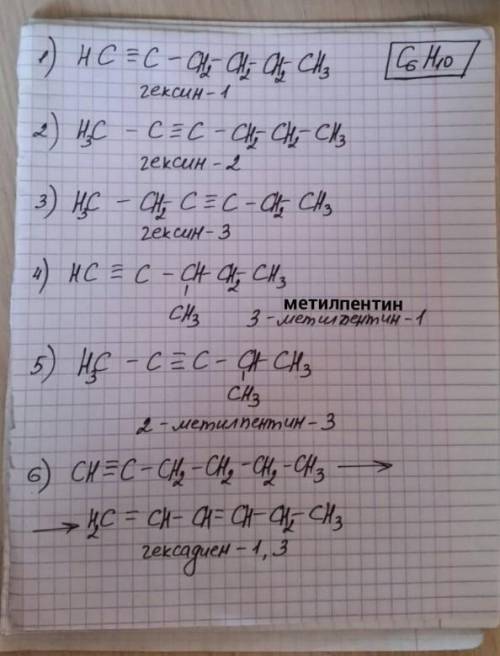 1) HC ≡ C – CH₂ – CH₂ – CH₂ – CH₃
C₆H₁₀
гексин-1
2) H₃C – C ≡ C – CH₂ – CH₂ – CH₃
гексин-2
3) H₃C – CH₂ – C ≡ C – CH₂ – CH₃
гексин-3
4) HC ≡ C – CH – CH₂ – CH₃
метилпентин
CH₃ 3-метилпентин-1
5) H₃C – C ≡ C – CH – CH₃
CH₃
2-метилпентин-3
6) CH ≡ C – CH₂ – CH₂ – CH₂ – CH₃ →
→ H₂C = CH – CH = CH – CH₂ – CH₃
гексадиен-1,3